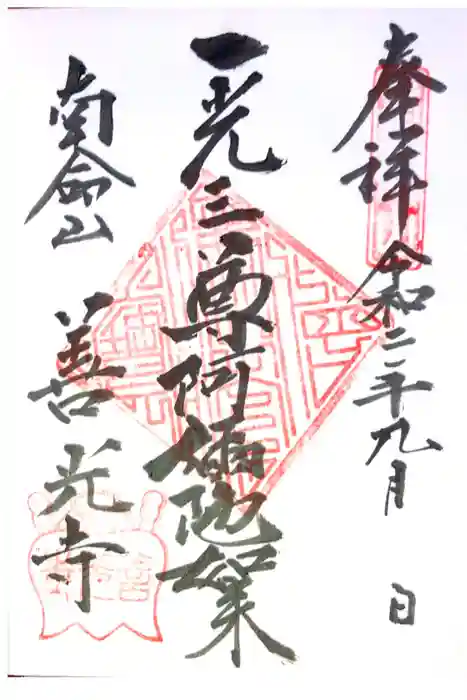 奉祥 令和二年九月 日
一光三尊阿弥陀如来
南命山 善光寺